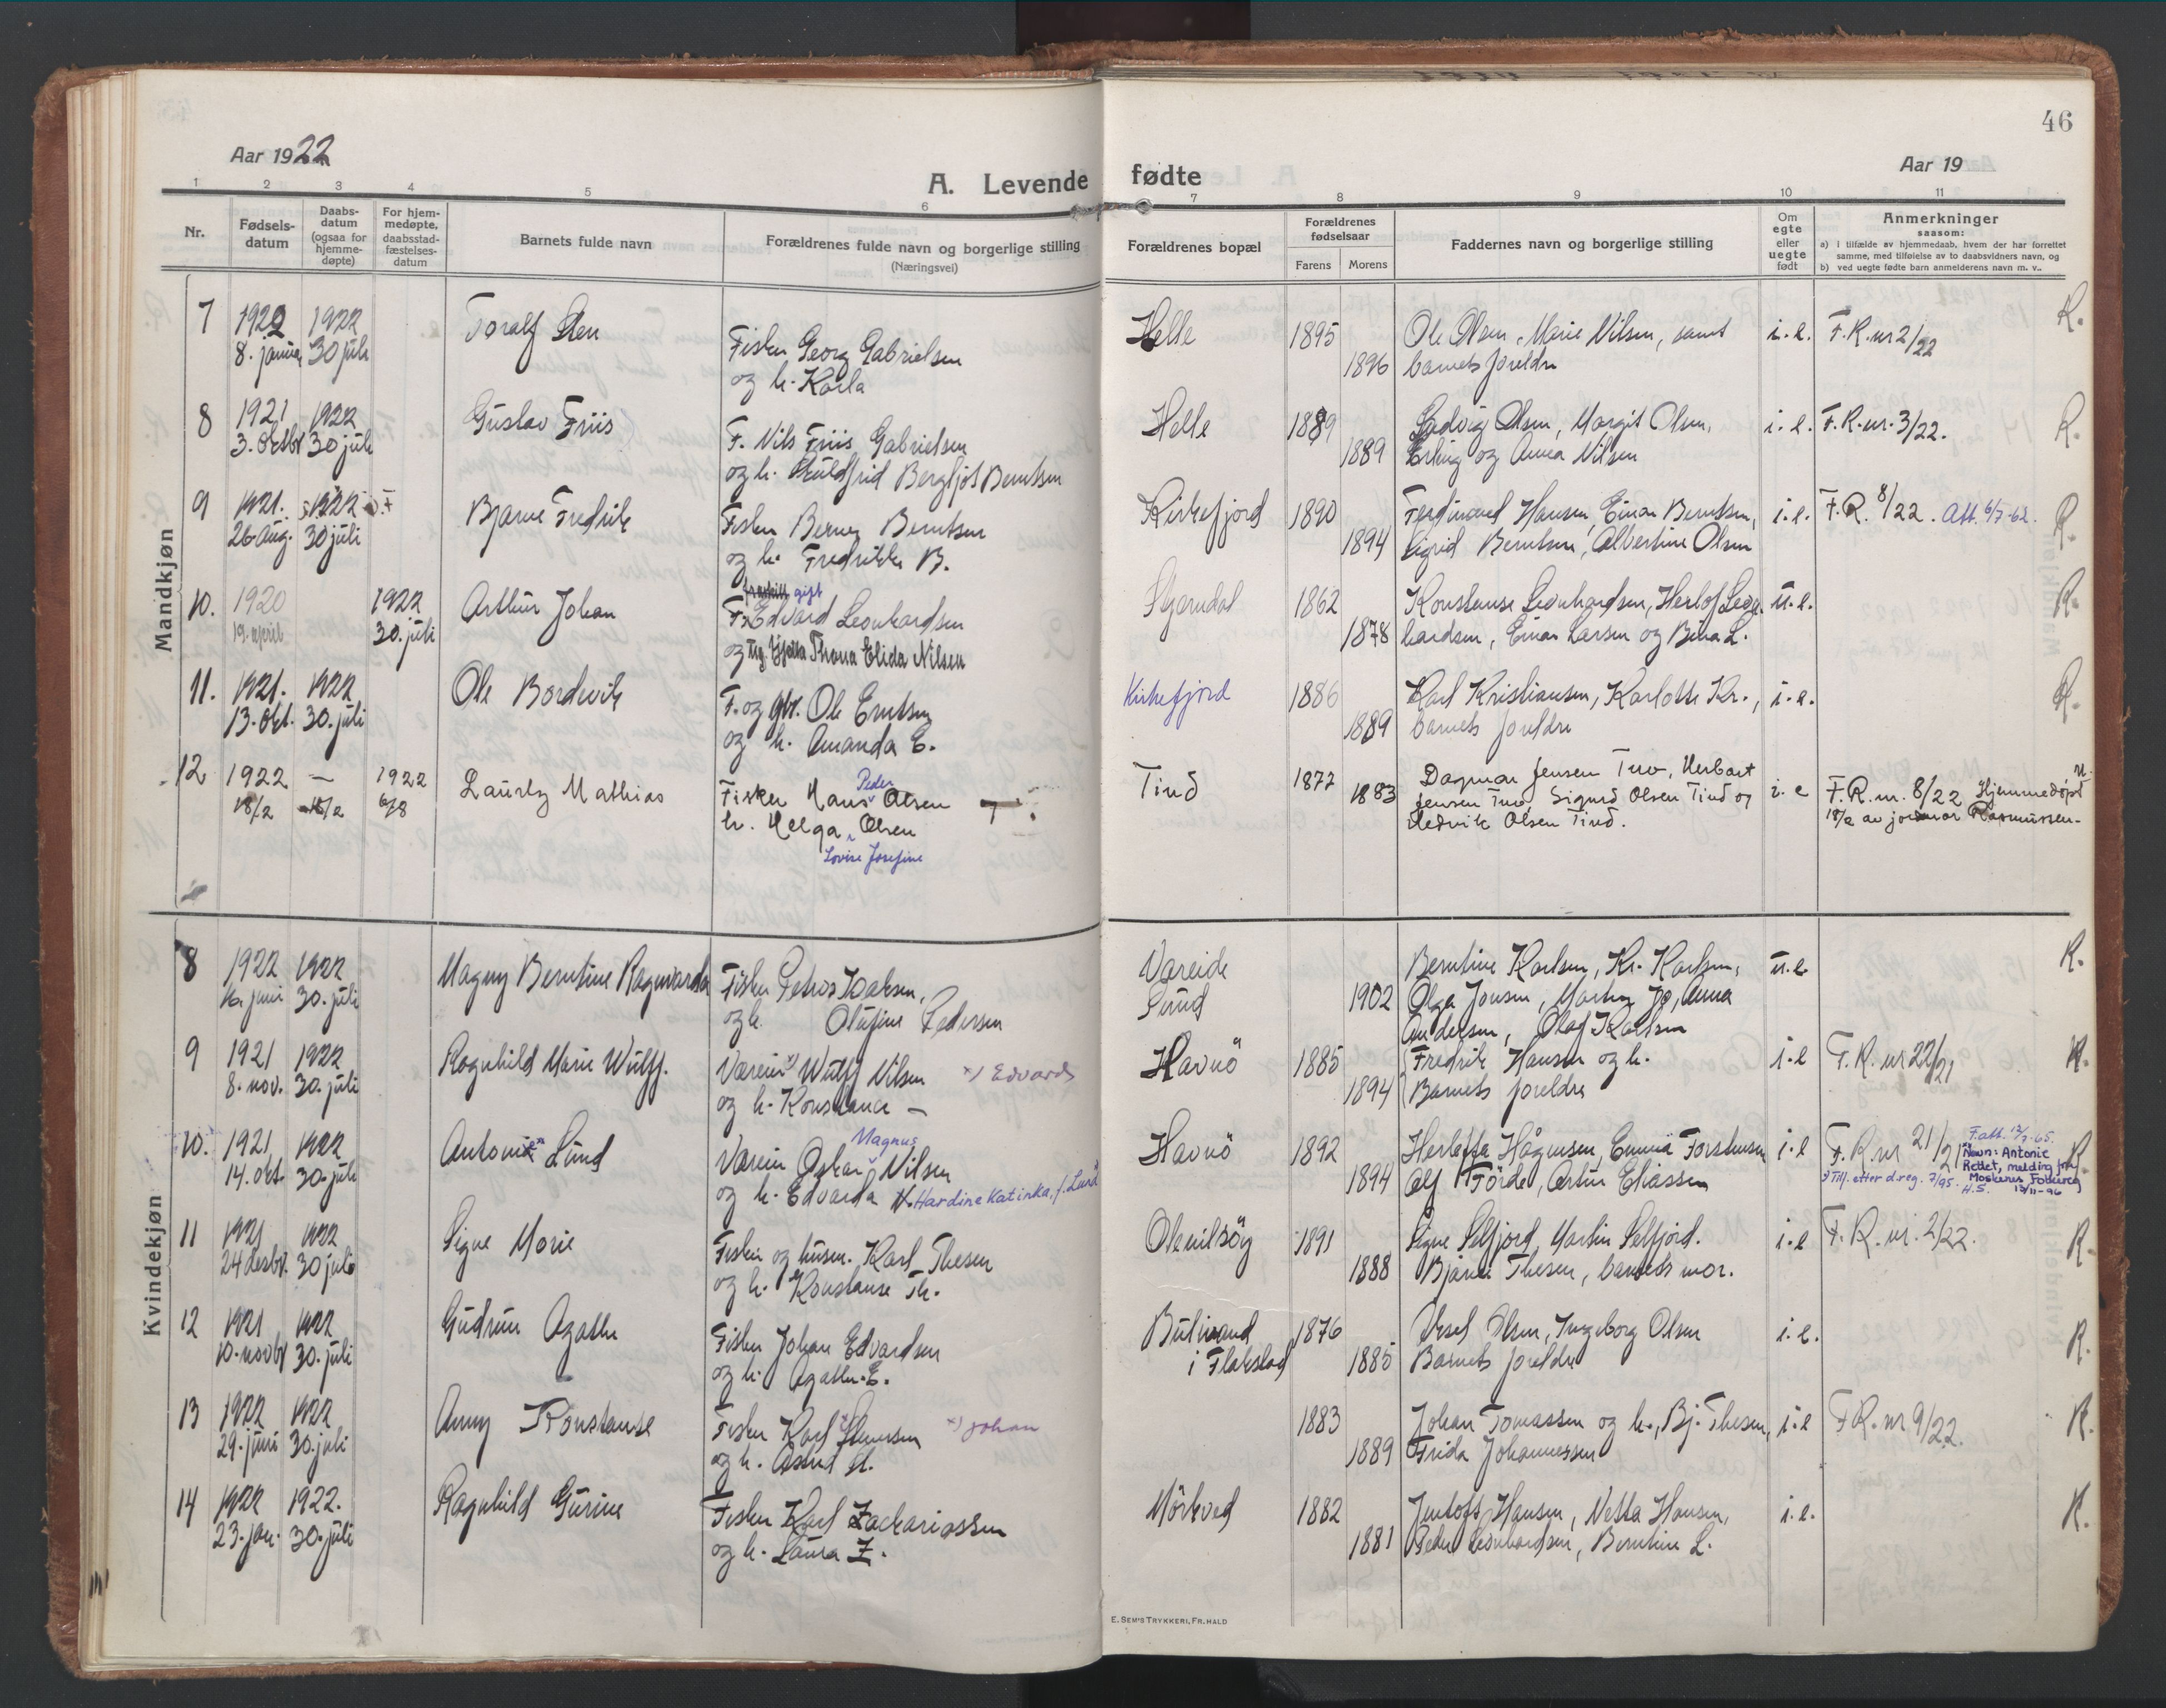 46
Aar 1922
Aar 19
A. Levende fødte
1 2 3 4 5 6 7 8 9 10 11
Nr.
Fødsels-datum
Daabs-datum (ogsaa for hjemme-døpte)
For hjem-medøpte, daabsstad-fæstelses-datum
Barnets fulde navn
Forældrenes fulde navn og borgerlige stilling (Næringsvei)
Forældrenes bopæl
Forældrenes fødselsaar
Farens Morens
Faddernes navn og borgerlige stilling
Om egte eller uegte født
Anmerkninger saasom:
a) i tilfælde av hjemmedaab, hvem der har forrettet samme, med tilføielse av to daabsvidners navn, og
b) ved uegte fødte barn anmelderens navn m. v..
Mandkjøn
7 1922 1922 Toralf Helle 1895 Ole Olsen, Marie Nilsen, samt i.e. F.R. nr 2/22 R.
8. januar 30 juli Fisker Georg Gabrielsen 1896 barnets foreldre
og h. Karla
8 1921 1922 Gustav Friis F. Nils Friis Gabrielsen Helle 1889 Ludvig Olsen, Margit Olsen, i.e. F.R. nr. 3/22. R.
3. oktbr 30 juli og h. Huldfrid Bergljot Berntsen 1889 Erling og Anna Nilsen
9 1921. 1922 Bjarne Fredrik Fisker Berner Berntsen Kirkefjord 1890 Ferdinand Hansen, Einar Berntsen, i.e. F.R. 8/22. Att. 6/7-62. R.
26 aug. 30 juli og h. Fredrikke B. 1894 Sigrid Berntsen, Albertine Olsen
10. 1920 1922 Arthur Johan gift
F. Edvard Leonhardsen 1862 Konstanse Leonhardsen, Herlof Leon- u.e. R.
19. april 30. juli og Thona Elida Nilsen 1878 hardsen, Einar Larsen og Bina L.
11. 1921. 1922 Ole Bordevik F. og gbr. Ole Erntsen Kirkefjord 1886 Karl Kristiansen, Karlotte Kr., i.e. R.
13. okt. 30. juli og h. Amanda E. 1889 barnets foreldre
12 1922 — 1922 Lauritz Mathias Fisker Hans Peder Olsen Tind 1877 1883 Dagmar Jensen Tuv, Herbart i.e F.R. nr. 8/22 Hjemmedøpt
18/2 18/2 6/8 h. Helga Olsen Jensen Tuv, Sigurd Olsen Tind og 18/2 av jordmor Rasmussen.
Lovise Josefine Hedvik Olsen Tind.
Kvindekjøn
8 1922 1922 Magny Berntine Ragnvarda Fisker Petros Isaksen, Vareide Berntine Karlsen, Kr. Karlsen, u.e R.
16. juni 30. juli og h. Olufine Pedersen Sund 1902 Olga Jensen, Martin Jo, Anna
Andersen, Olaf Karlsen
9 1921 1922 Ragnhild Marie Wulff. Væreier x) Wulff Nilsen x) Edvard Havnö 1885 Fredrik Hansen og h. i.e F.R. nr 22/21 R.
8. nov. 30. juli og h. Konstance — 1894 Barnets foreldre
10. 1921 1922 Antonie Lund Væreier Oskar Magnus Nilsen Havnö 1892 Emma Torstensen i.e F.R. nr 21/21 F.att. 12/7-65. R.
14. okt. 30. juli og h. Edvarda N. Hardine Katinka, f. Lund 1894 Alf Förde, Artur Eliassen Navn: Antonie
Rettet, melding fra
Tilf. etter d.reg. 7/95. Moskenes Folkereg
H.S. 13/11-96
11 1921 1922 Signe Marie Fisker og husm. Karl Thesen Olenilsöy 1891 Signe Selfjord, Martin Selfjord. i.e F.R. nr. 2/22. R.
24 desbr. 30 juli og h. Konstanse Th. 1888 Bjarne Thesen, barnets mor.
12 1921 1922 Gudrun Agathe Fisker Johan Edvardsen Bulivand 1876 Olsen, Ingeborg Olsen i.e. R.
10. novbr 30. juli og h. Agathe E. i Flakstad 1885 Barnets foreldre
13 1922 1922 Anny Konstanse Fisker Karl x) x) Johan 1883 Johan Tomassen og h., Bj. Thesen, i.e F.R. nr 9/22. R.
29. juni 30. juli og h. Astrid 1889 Frida Johannessen
14 1922 1922. Ragnhild Gurine Fisker Karl Zackariassen Mörkved 1882 Jentoft Hansen, Netta Hansen, i.e. R.
23. jan. 30. juli og h. Laura Z. 1881 Peder Leonhardsen, Berntine L.
E. SEM'S TRYKKERI, FR. HALD